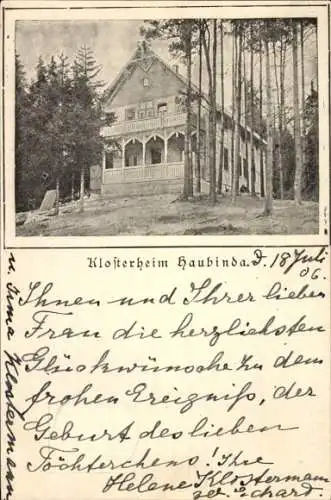 Klosterheim Haubinda. d. 18 Juli
06.
Ihnen und Ihrer lieben
Frau die herzlichsten
Glückwünsche zu dem
frohen Ereigniß, der
Geburt des lieben
Töchterchens! Ihre
Helene Klostermann
geb. Eckard
u. Irma Klostermann